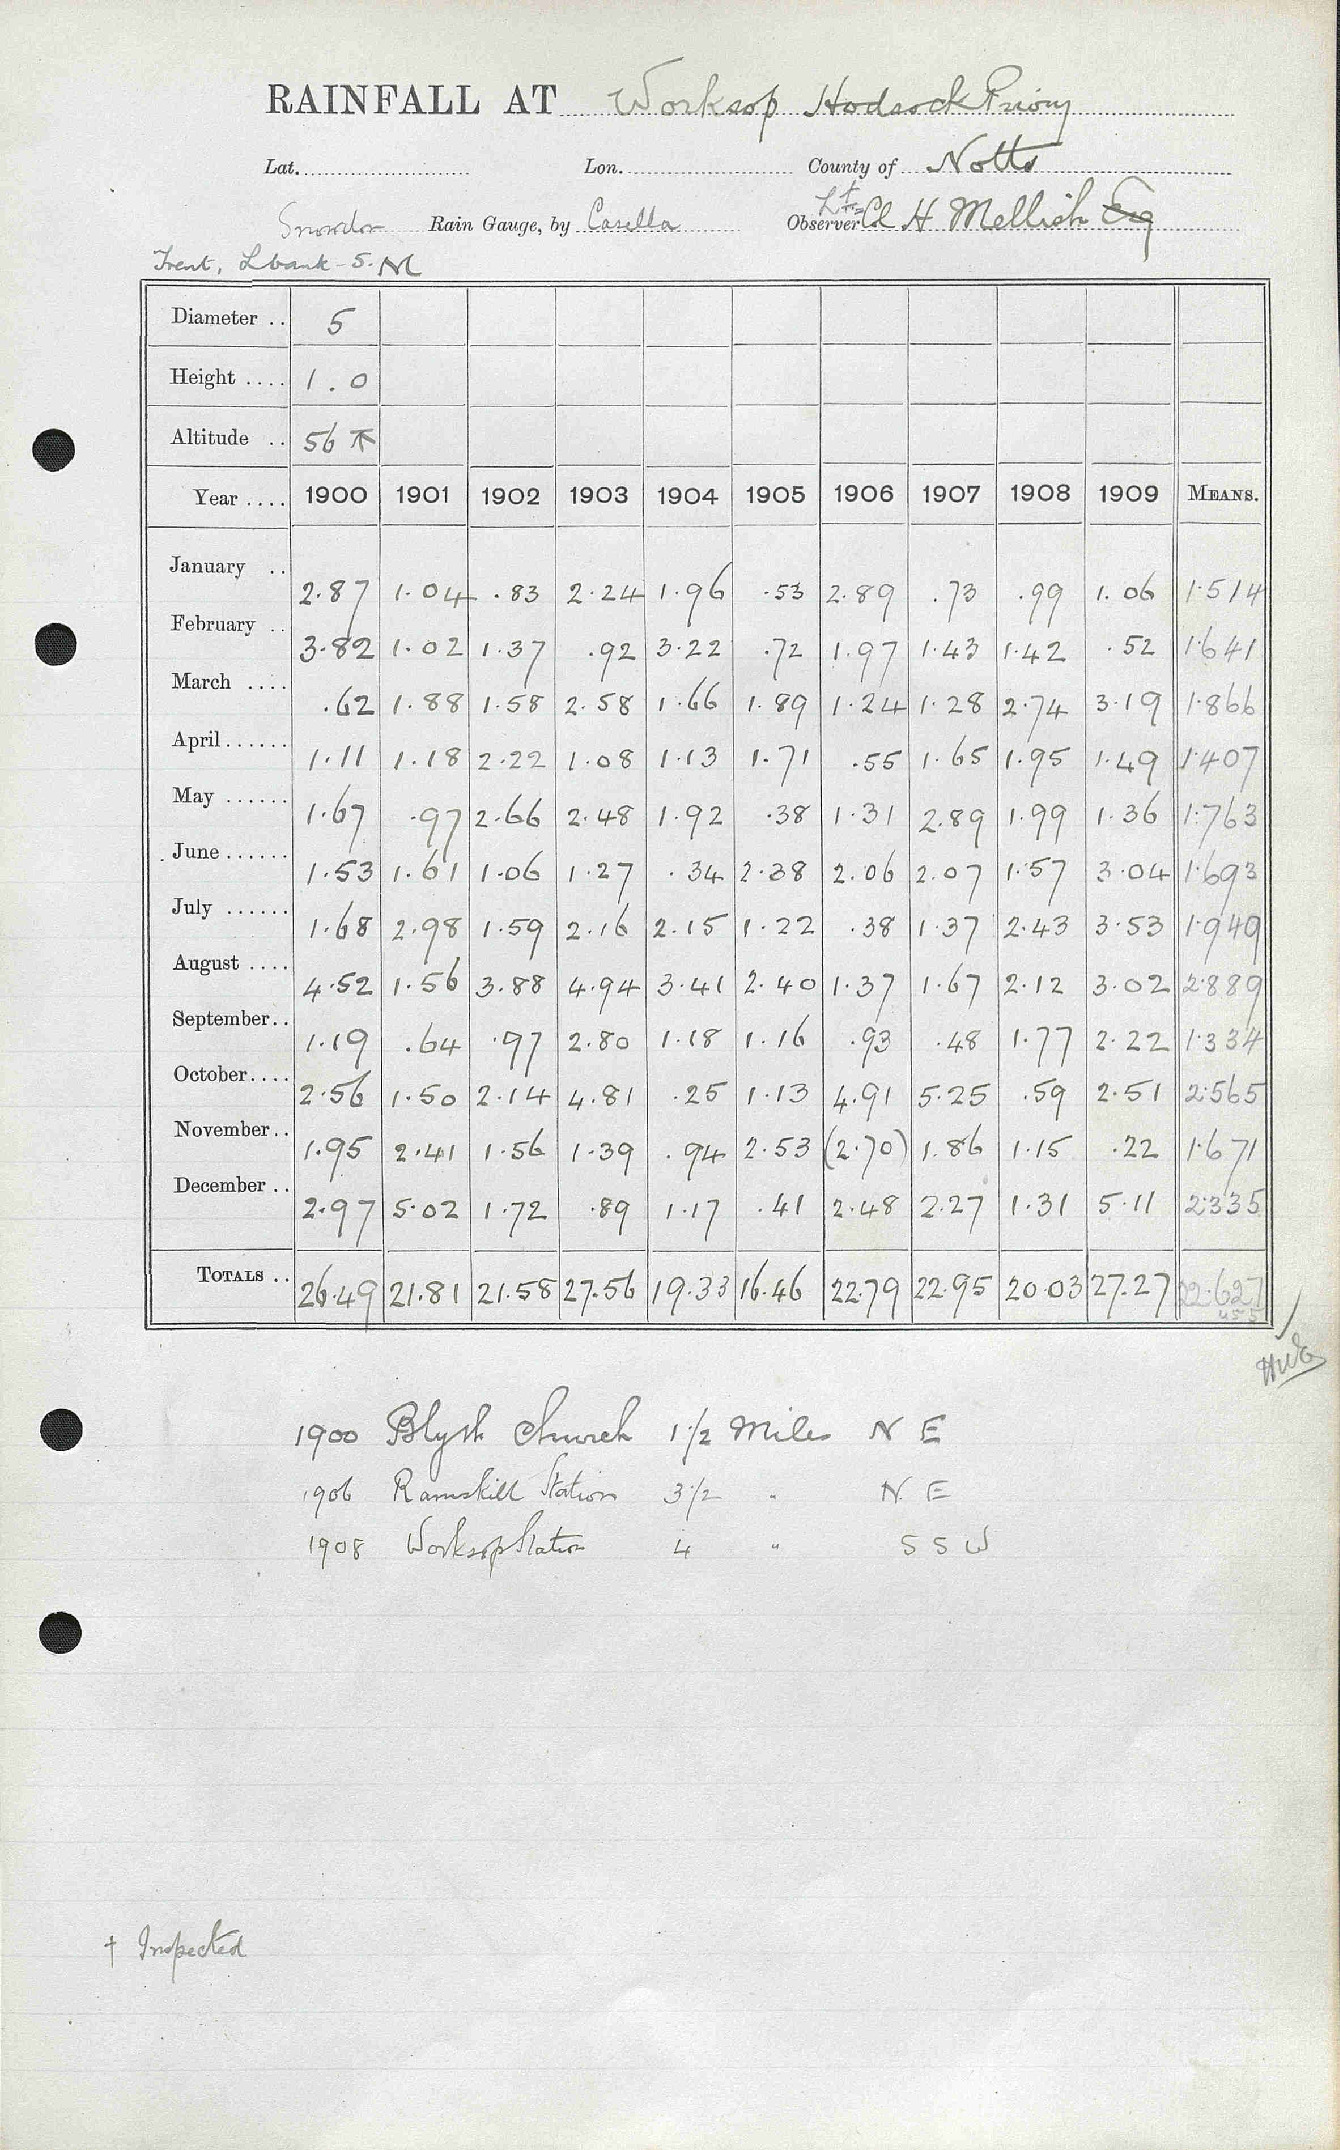 RAINFALL AT Worksop Hodsock Priory
Lat. Lon. County of Notts
Snowdon Rain Gauge, by Casella Observer Lt Col H Mellish Esq
Trent, L bank - S.
Diameter .. 5
Height .... 1.0
Altitude .. 56
Year .... 1900 1901 1902 1903 1904 1905 1906 1907 1908 1909 MEANS.
January .. 2.87 1.04 .83 2.24 1.96 .53 2.89 .73 .99 1.06 1.514
February .. 3.82 1.02 1.37 .92 3.22 .72 1.97 1.43 1.42 .52 1.641
March .... .62 1.88 1.58 2.58 1.66 1.89 1.24 1.28 2.74 3.19 1.866
April...... 1.11 1.18 2.22 1.08 1.13 1.71 .55 1.65 1.95 1.49 1.407
May ...... 1.67 .97 2.66 2.48 1.92 .38 1.31 2.89 1.99 1.36 1.763
June...... 1.53 1.61 1.06 1.27 .34 2.38 2.06 2.07 1.57 3.04 1.693
July ...... 1.68 2.98 1.59 2.16 2.15 1.22 .38 1.37 2.43 3.53 1.949
August .... 4.52 1.56 3.88 4.94 3.41 2.40 1.37 1.67 2.12 3.02 2.889
September.. 1.19 .64 .97 2.80 1.18 1.16 .93 .48 1.77 2.22 1.334
October.... 2.56 1.50 2.14 4.81 .25 1.13 4.91 5.25 .59 2.51 2.565
November.. 1.95 2.41 1.56 1.39 .94 2.53 (2.70) 1.86 1.15 .22 1.671
December .. 2.97 5.02 1.72 .89 1.17 .41 2.48 2.27 1.31 5.11 2.335
TOTALS .. 26.49 21.81 21.58 27.56 19.33 16.46 22.79 22.95 20.03 27.27 22.627
1900 Blyth Church 1 1/2 Miles N E
1906 Ranskill Station 3 1/2 " N E
1908 Worksop Station 4 " S S W
† Inspected